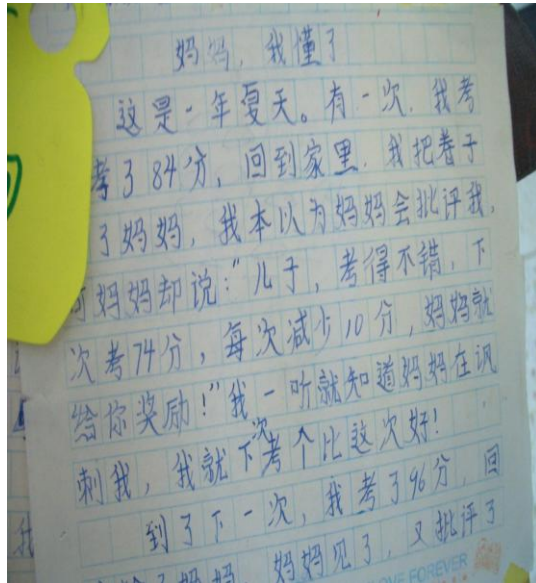 妈妈，我懂了
这是一年夏天。有一次，我考
考了84分，回到家里，我把卷子
了妈妈，我本以为妈妈会批评我，
可妈妈却说：“儿子，考得不错，下
次考74分，每次减少10分，妈妈就
给你奖励！”我一听就知道妈妈在讽
刺我，我就下次考个比这次好！
到了下一次，我考了96分，回
给了妈妈，妈妈见了，又批评了
我
FOREVER